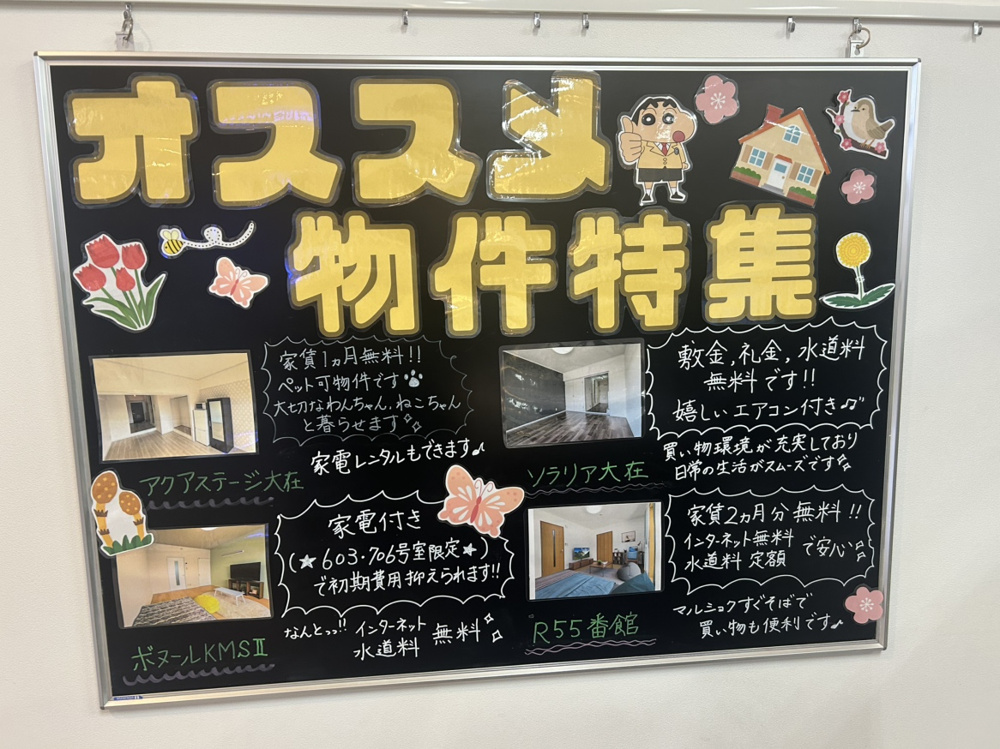 オススメ
物件特集
家賃1ヵ月無料!!
ペット可物件です
大切なわんちゃん、ねこちゃん
と暮らせます
家電レンタルもできます♪
アクアステージ大在
敷金,礼金,水道料
無料です!!
嬉しいエアコン付き♫
買い物環境が充実しており
日常の生活がスムーズです
ソラリア大在
家電付き
(★603・706号室限定★)
で初期費用抑えられます!!
なんとっっ!!
インターネット
水道料
無料
ボヌールKMSⅡ
家賃2ヵ月分無料!!
インターネット無料
水道料 定額
で安心
マルショクすぐそばで
買い物も便利です♪
R55番館